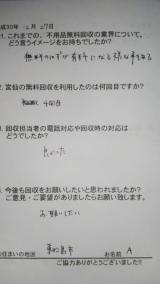 平成30年 12月 27日
1. これまでの、不用品無料回収の業界について、
どう言うイメージをお持ちでしたか?
無料のはずが有料になる様な事を
2. 宮仙の無料回収を利用したのは何回目ですか?
4回目
3. 回収担当者の電話対応や回収時の対応は
どうでしたか?
良かった
今後も回収をお願いしたいと思われましたか?
ご意見・ご要望がありましたらお願い致します。
お願いしたい
お住まいの地区 東松島市 お名前 A
ご協力ありがとうございました!!